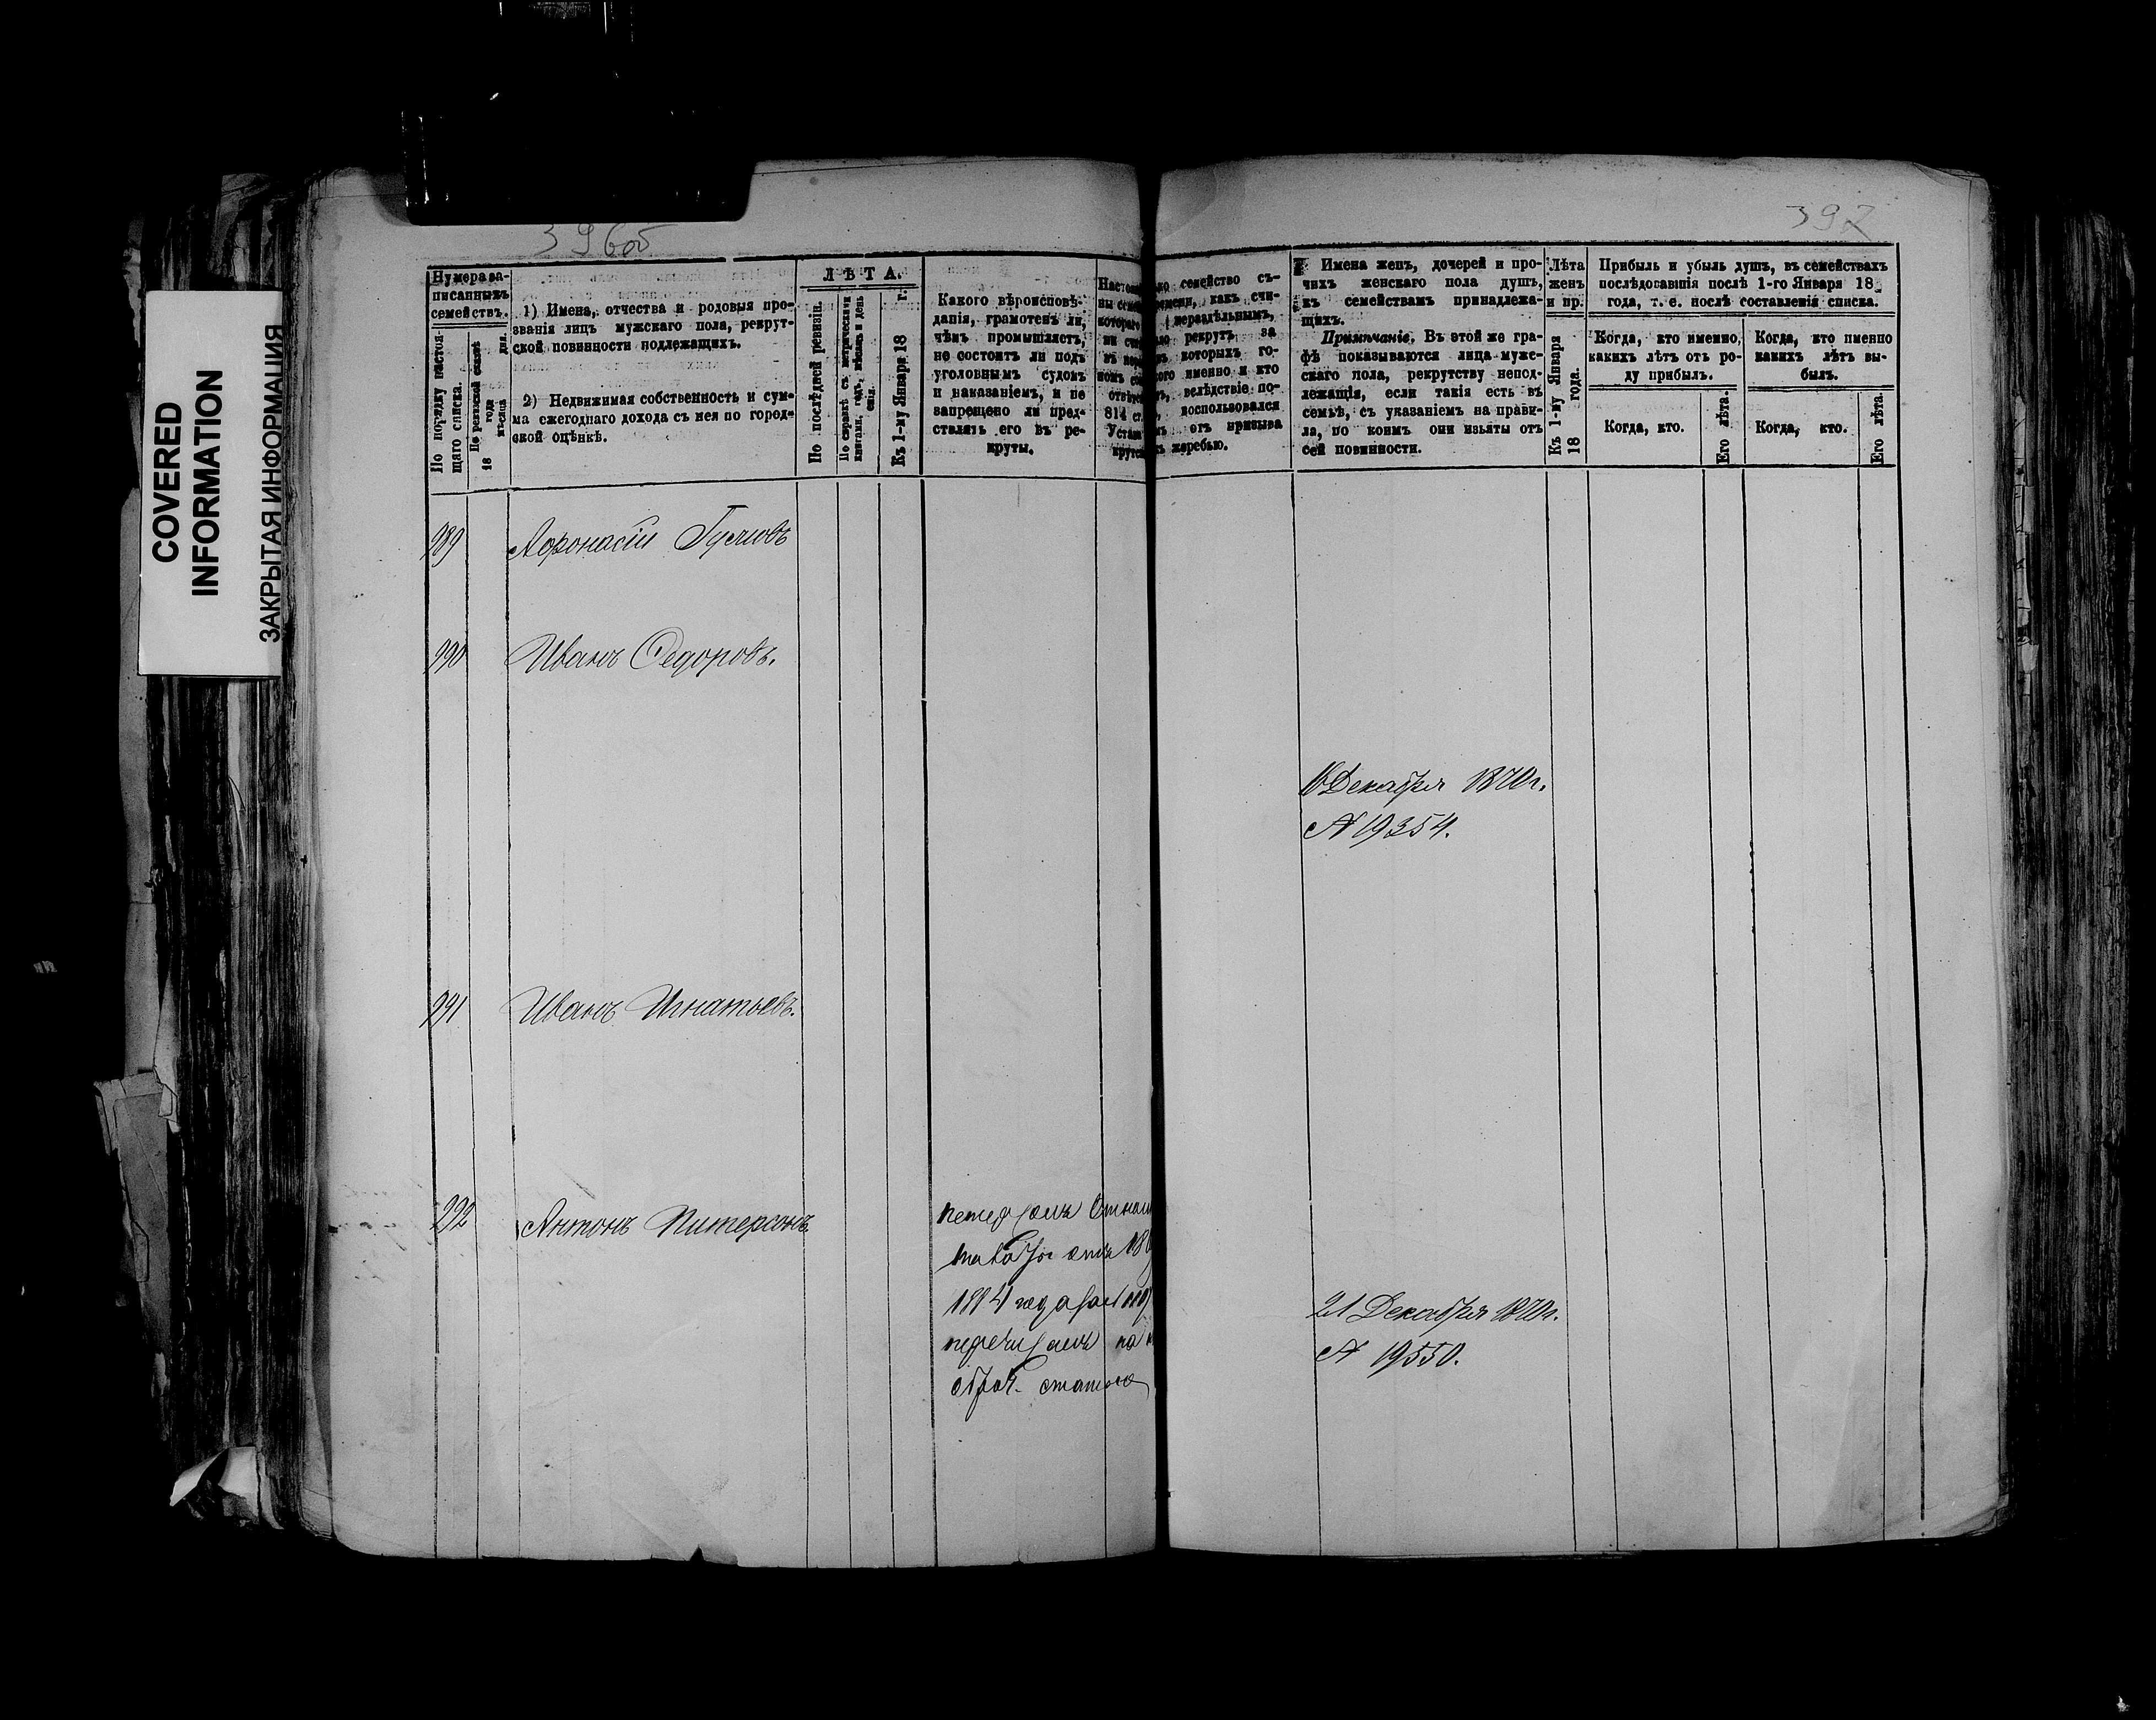 COVERED
INFORMATION
ЗАКРЫТАЯ ИНФОРМАЦИЯ
396об
397
Нумера за-
писанныхъ
семействъ.
По порядку настоя-
щаго списка.
По ревизской сказкѣ
18 года
мѣсяца дня.
1) Имена, отчества и родовыя про-
званія лицъ мужскаго пола, рекрут-
ской повинности подлежащихъ.
2) Недвижимая собственность и сум-
ма ежегоднаго дохода съ нея по город-
ской оцѣнкѣ.
ЛѢТА.
По послѣдней ревизіи.
По справкѣ съ метрическими
книгами, годъ, мѣсяцъ и день
Къ 1-му Января 18 г.
Какого вѣроисповѣ-
данія, грамотенъ ли,
чѣмъ промышляетъ,
не состоитъ ли подъ
уголовнымъ судомъ
и наказаніемъ, и не
запрещено ли пред-
ставлять его въ ре-
круты.
семейство съ-
времени, какъ счи-
нераздѣльнымъ,
рекрутъ за
которыхъ го-
именно и кто
вслѣдствіе по-
814 ст. воспользовался
отъ призыва
жеребью.
Имена женъ, дочерей и про-
чихъ женскаго пола душъ,
къ семействамъ принадлежа-
щихъ.
Примѣчаніе. Въ этой же гра-
фѣ показываются лица муже-
скаго пола, рекрутству непод-
лежащія, если такія есть въ
семьѣ, съ указаніемъ на прави-
ла, по коимъ они изъяты отъ
сей повинности.
Лѣта
женъ
и пр.
Къ 1-му Января
18 года.
Прибыль и убыль душъ, въ семействахъ
послѣдовавшія послѣ 1-го Января 18
года, т. е. послѣ составленія списка.
Когда, кто именно,
какихъ лѣтъ отъ ро-
ду прибылъ.
Когда, кто именно
какихъ лѣтъ вы-
былъ.
Когда, кто.
Его лѣта.
Когда, кто.
Его лѣта.
989 Афонасій
990 Иванъ Ѳедоровъ.
16 Декабря 1870 г.
№ 19354.
991 Иванъ Игнатьевъ.
992 Антонъ Питерсонъ
1884 года
21 Декабря 1870 г.
№ 19550.